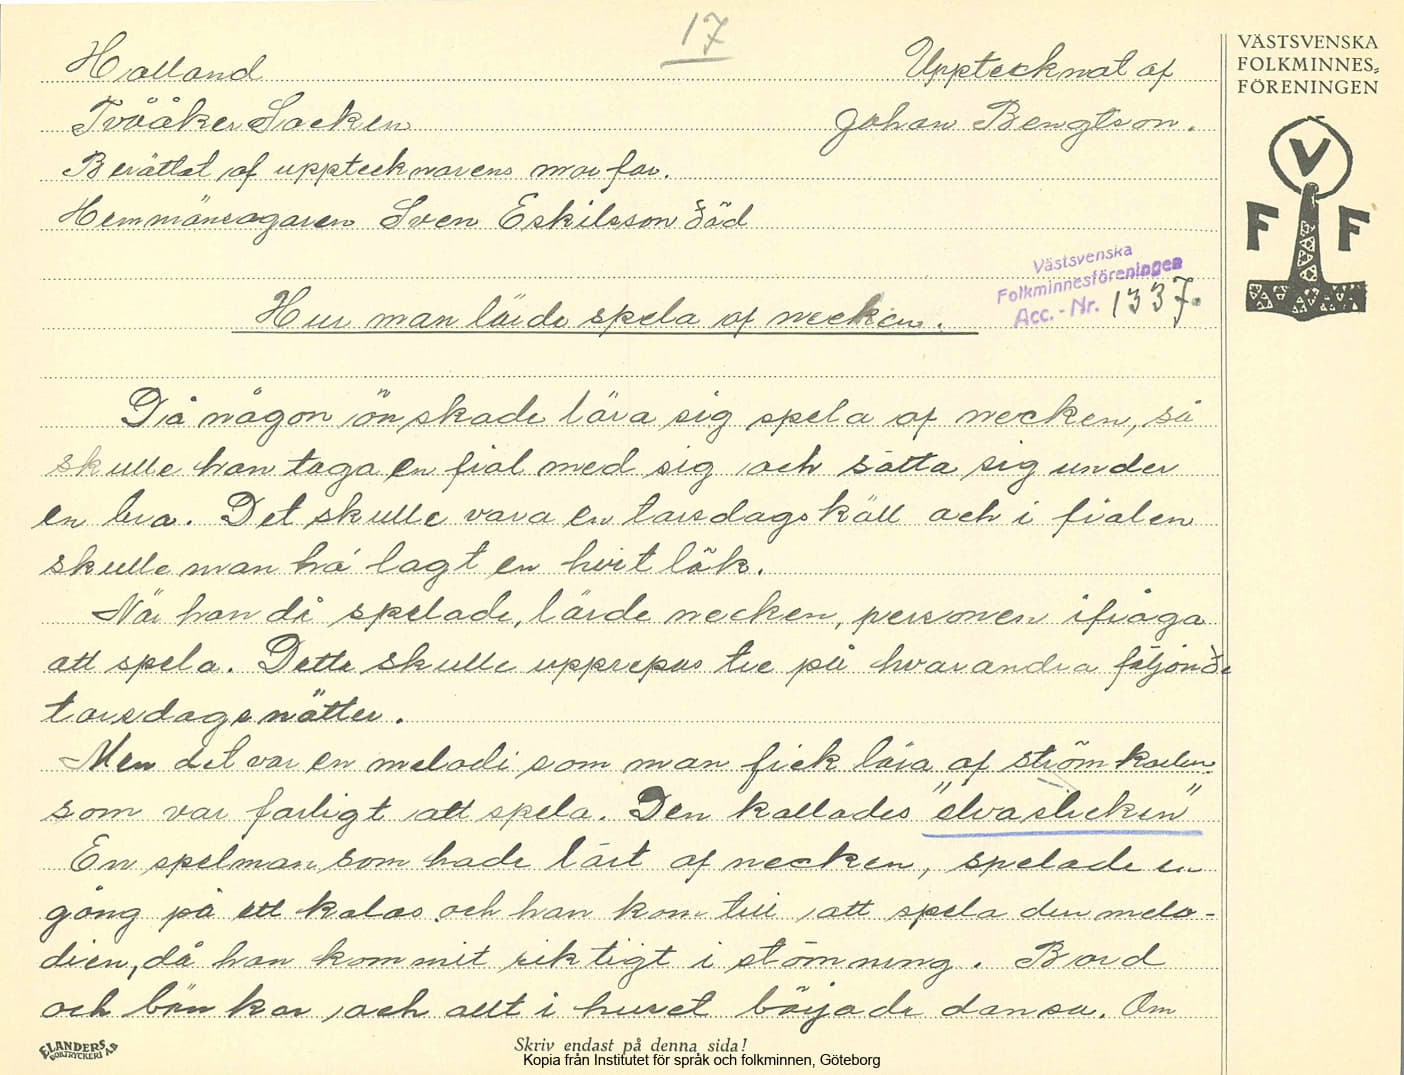 17
Halland
Upptecknat af
Tvååker Socken
Johan Bengtson.
Berättat af upptecknarens morfar.
Hemmansägaren Sven Eskilsson Född
Västsvenska
Folkminnesföreningen
Acc.-Nr. 1337.
Hur man lärde spela af necken.
Då någon önskade lära sig spela af necken, så
skulle han taga en fiol med sig och sätta sig under
en bro. Det skulle vara en torsdagskäll och i fiolen
skulle man ha lagt en hvit lök.
När han då spelade, lärde necken, personen ifråga
att spela. Detta skulle upprepas tre på hvarandra följande
torsdagsnätter.
Men det var en melodi som man fick lära af strömkarlen
som var farligt att spela. Den kallades "elvasleken"
En spelman som hade lärt af necken, spelade en
gång på ett kalas och han kom till att spela den melo-
dien, då han kommit riktigt i stämning. Bord
och bänkar och allt i huset började dansa. Om
VÄSTSVENSKA
FOLKMINNES-
FÖRENINGEN
V
F F
ELANDERS
BOKTRYCKERI AB
Skriv endast på denna sida!
Kopia från Institutet för språk och folkminnen, Göteborg